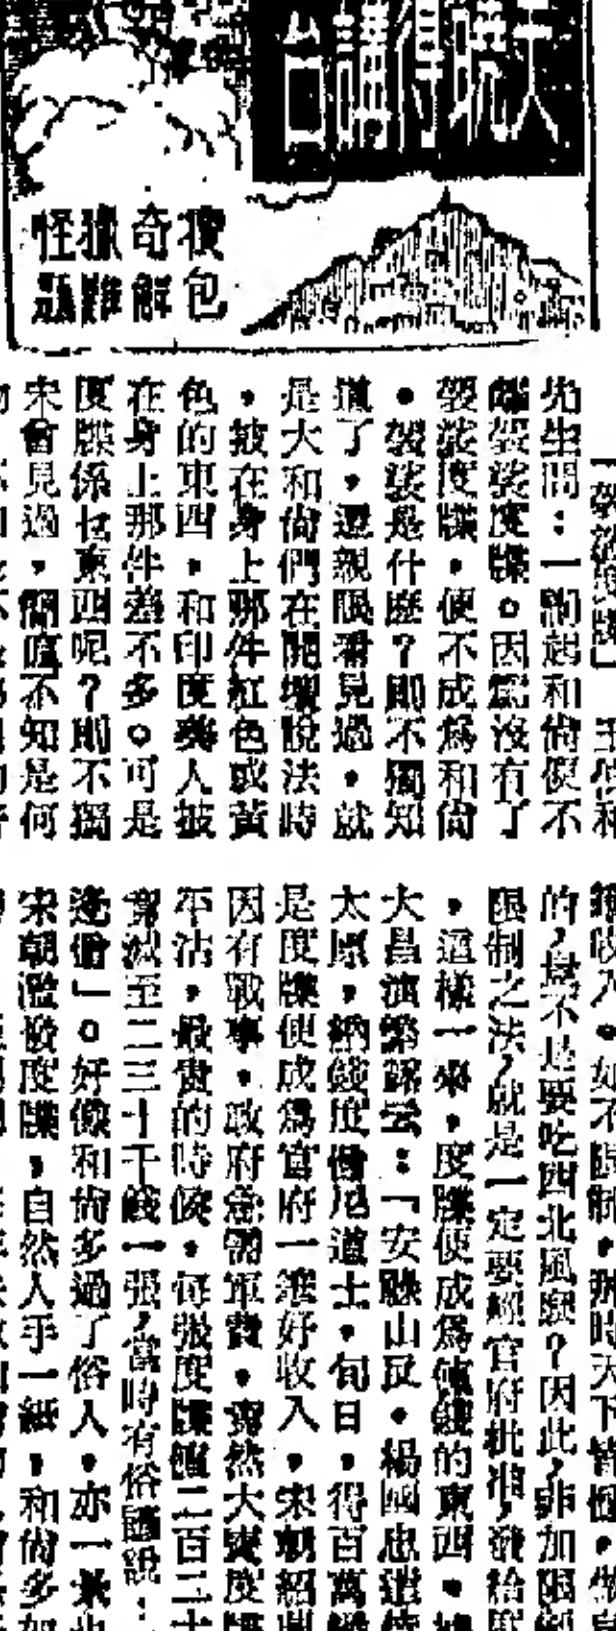 天曉得講台
搜包
奇解
獵難
怪題
「袈裟度牒」
先生問：一說起和尙便不
離袈裟度牒。因爲沒有了
袈裟度牒，便不成爲和尙
。袈裟是什麽？則不獨知
道了，還親眼看見過，就
是大和尙們在開壇說法時
，披在身上那件紅色或黃
色的東西，和印度人披
在身上那件差不多。可是
度牒係乜東西呢？則不獨
宋曾見過，簡直不知是何
的，是不是要吃西北風麽？因此，非加限制
限制之法，就是一定要經官府批准，發給度
，這樣一來，度牒便成爲値錢的東西。
大昌演繁露云：「安祿山反，楊國忠遣使
太原，納錢度僧尼道士，旬日，得百萬緡
是度牒便成爲官府一筆好收入，宋朝紹興
因有戰事，政府急需軍費，竟然大賣度牒
不沾，最貴的時候，每張度牒値二百二十
減至二三十千錢一張，當時有俗語說：
逢僧」。好像和尙多過了俗人，亦一景也
宋朝濫發度牒，自然人手一紙，和尙多如